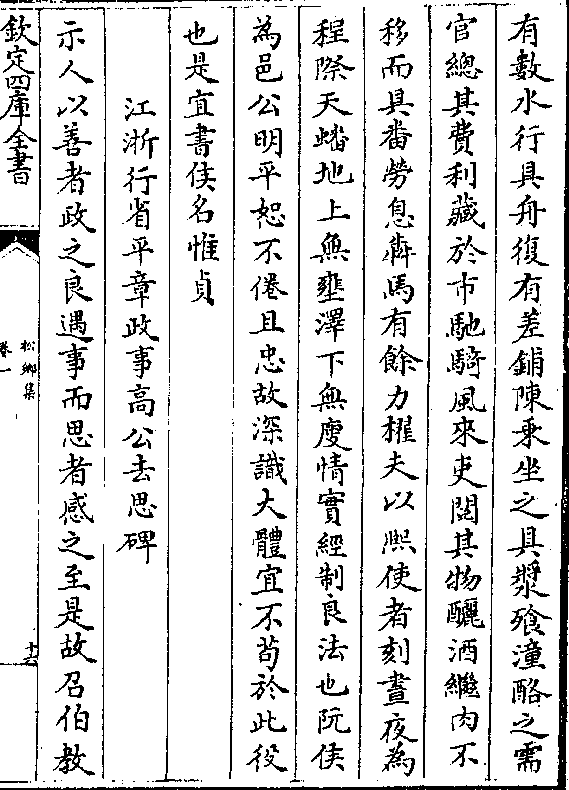 有數水行具舟復有差鋪陳乘坐之具漿飱湩酪之需
官總其費利藏於市馳騎風來吏閲其物釃酒繼肉不
移而具畨勞息犇馬有餘力櫂夫以熙使者刻晝夜為
程際天蟠地上無壅澤下無廋情實經制良法也阮侯
為邑公明平恕不倦且忠故深識大體宜不茍於此役
也是宜書侯名惟貞
江浙行省平章政事高公去思碑
示人以善者政之良遇事而思者感之至是故召伯教
欽定四庫全書
松鄉集
卷一
十六